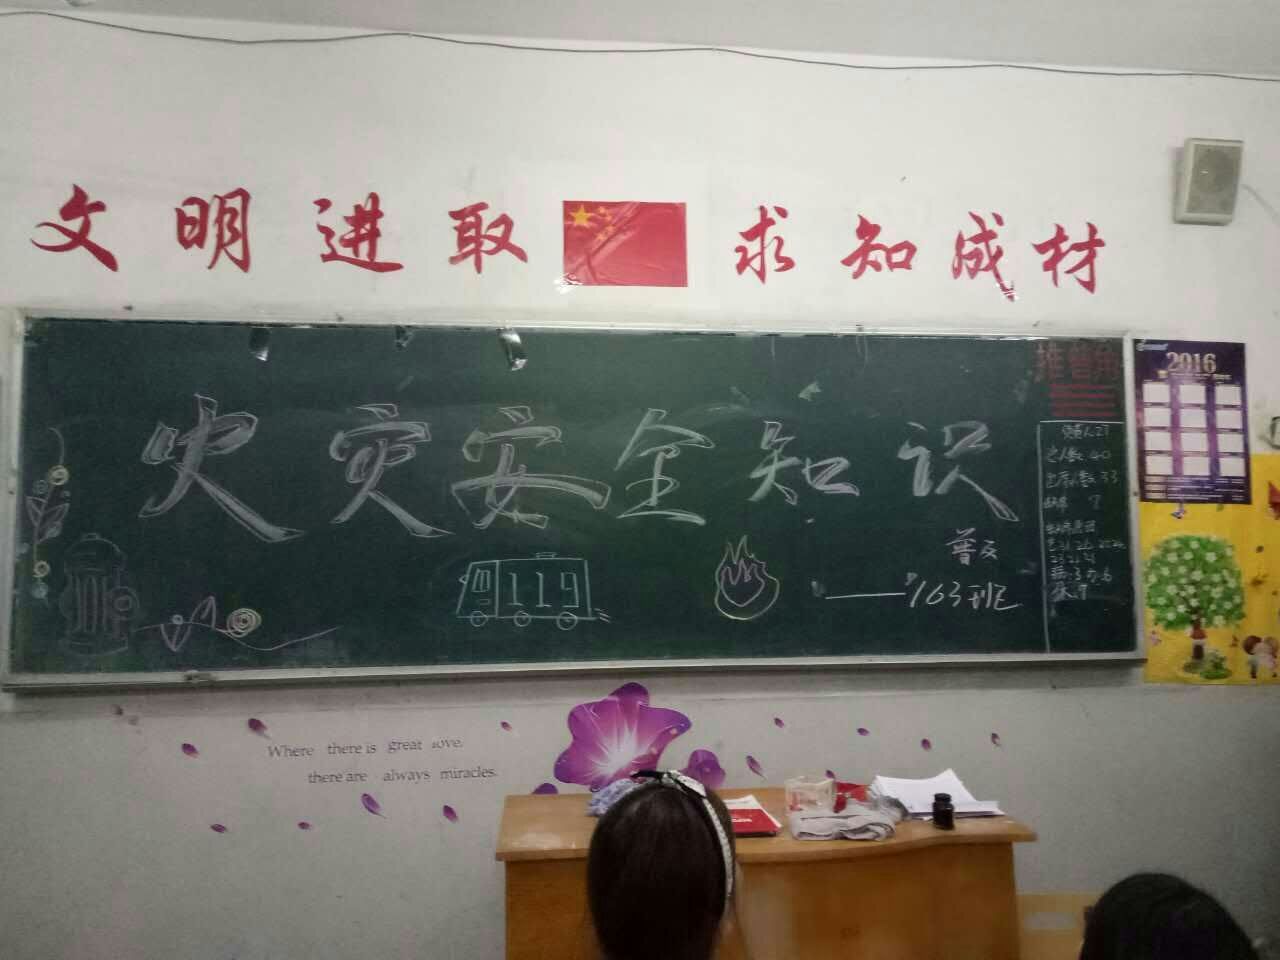 文明进取 求知成材
2016
推普角
火灾安全知识
总人数 40
出席人数 33
缺席 7
普及
——163班
119
Where there is great love,
there are always miracles.